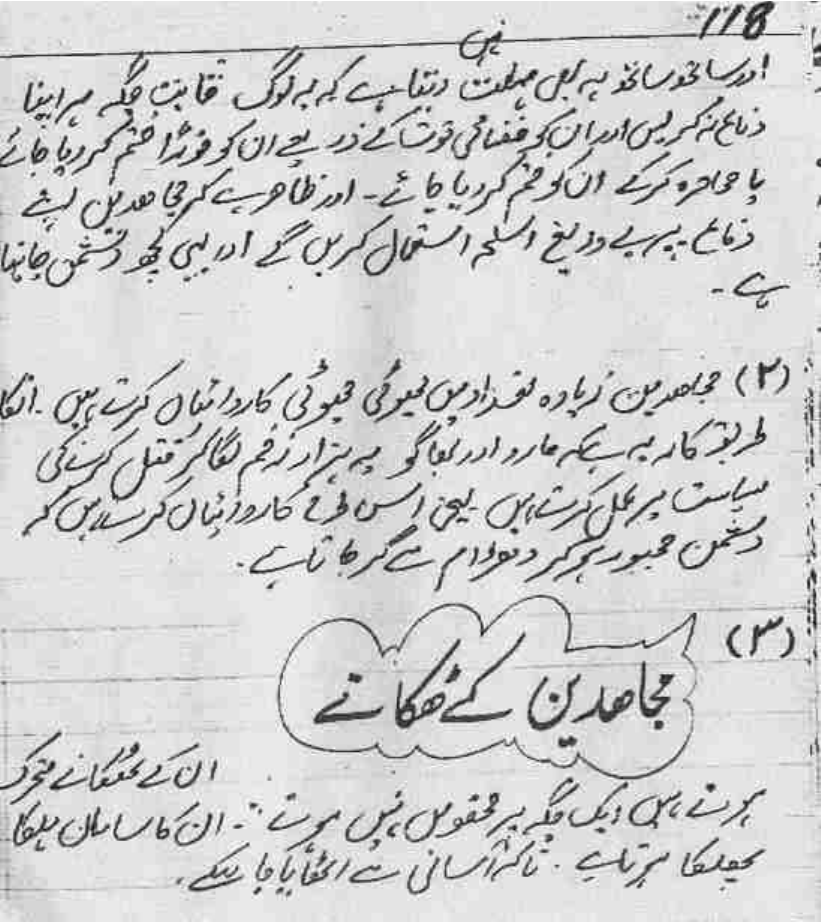 118
نہیں
اور ساتھ ساتھ یہ بھی مہلت دیتا ہے کہ یہ لوگ ثابت جگہ پر اپنا
دفاع نہ کریں اور ان کو فضائی قوت کے ذریعے ان کو فوراً ختم کر دیا جائے
یا محاصرہ کرکے ان کو ختم کر دیا جائے ۔ اور ظاہر ہے کہ مجاھدین اپنے
دفاع پر بے دریغ اسلحہ استعمال کریں گے اور یہی کچھ دشمن چاہتا
ہے ۔
(۲) مجاھدین زیادہ تعداد میں چھوٹی چھوٹی کاروائیاں کرتے ہیں ۔ انکا
طریقہ کار یہ ہے کہ مارو اور بھاگو یہ ہزار زخم لگا کر قتل کرنے کی
سیاست پر عمل کرتے ہیں یعنی اس طرح کاروائیاں کرتے ہیں کہ
دشمن مجبور ہو کر دھڑام سے گر جاتا ہے ۔
(۳)
مجاھدین کے ٹھکانے
ان کے ٹھکانے متحرک
ہوتے ہیں ایک جگہ پر مخصوص نہیں ہوتے ۔ ان کا سامان ہلکا
پھلکا ہوتا ہے ۔ تاکہ آسانی سے اٹھایا جا سکے ۔